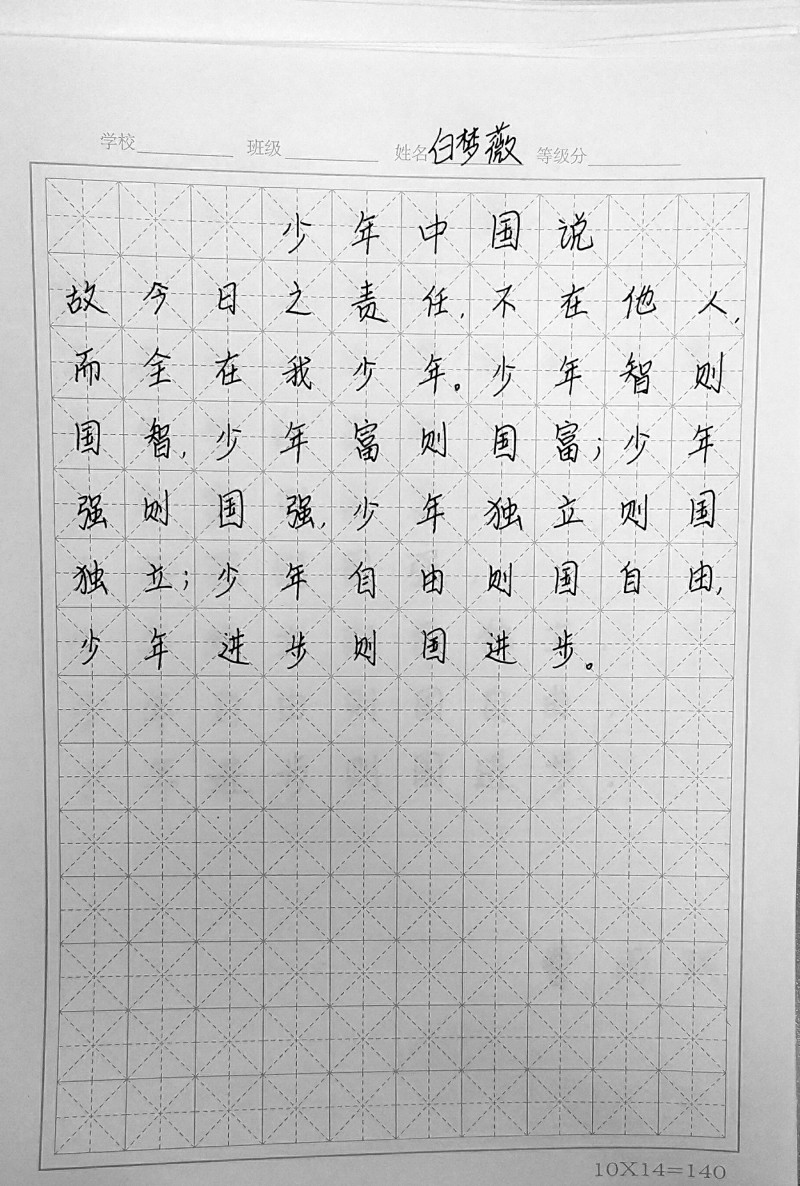 学校 班级 姓名白梦薇 等级分
少年中国说
故今日之责任,不在他人,
而全在我少年。少年智则
国智,少年富则国富;少年
强则国强,少年独立则国
独立;少年自由则国自由,
少年进步则国进步。
10X14=140